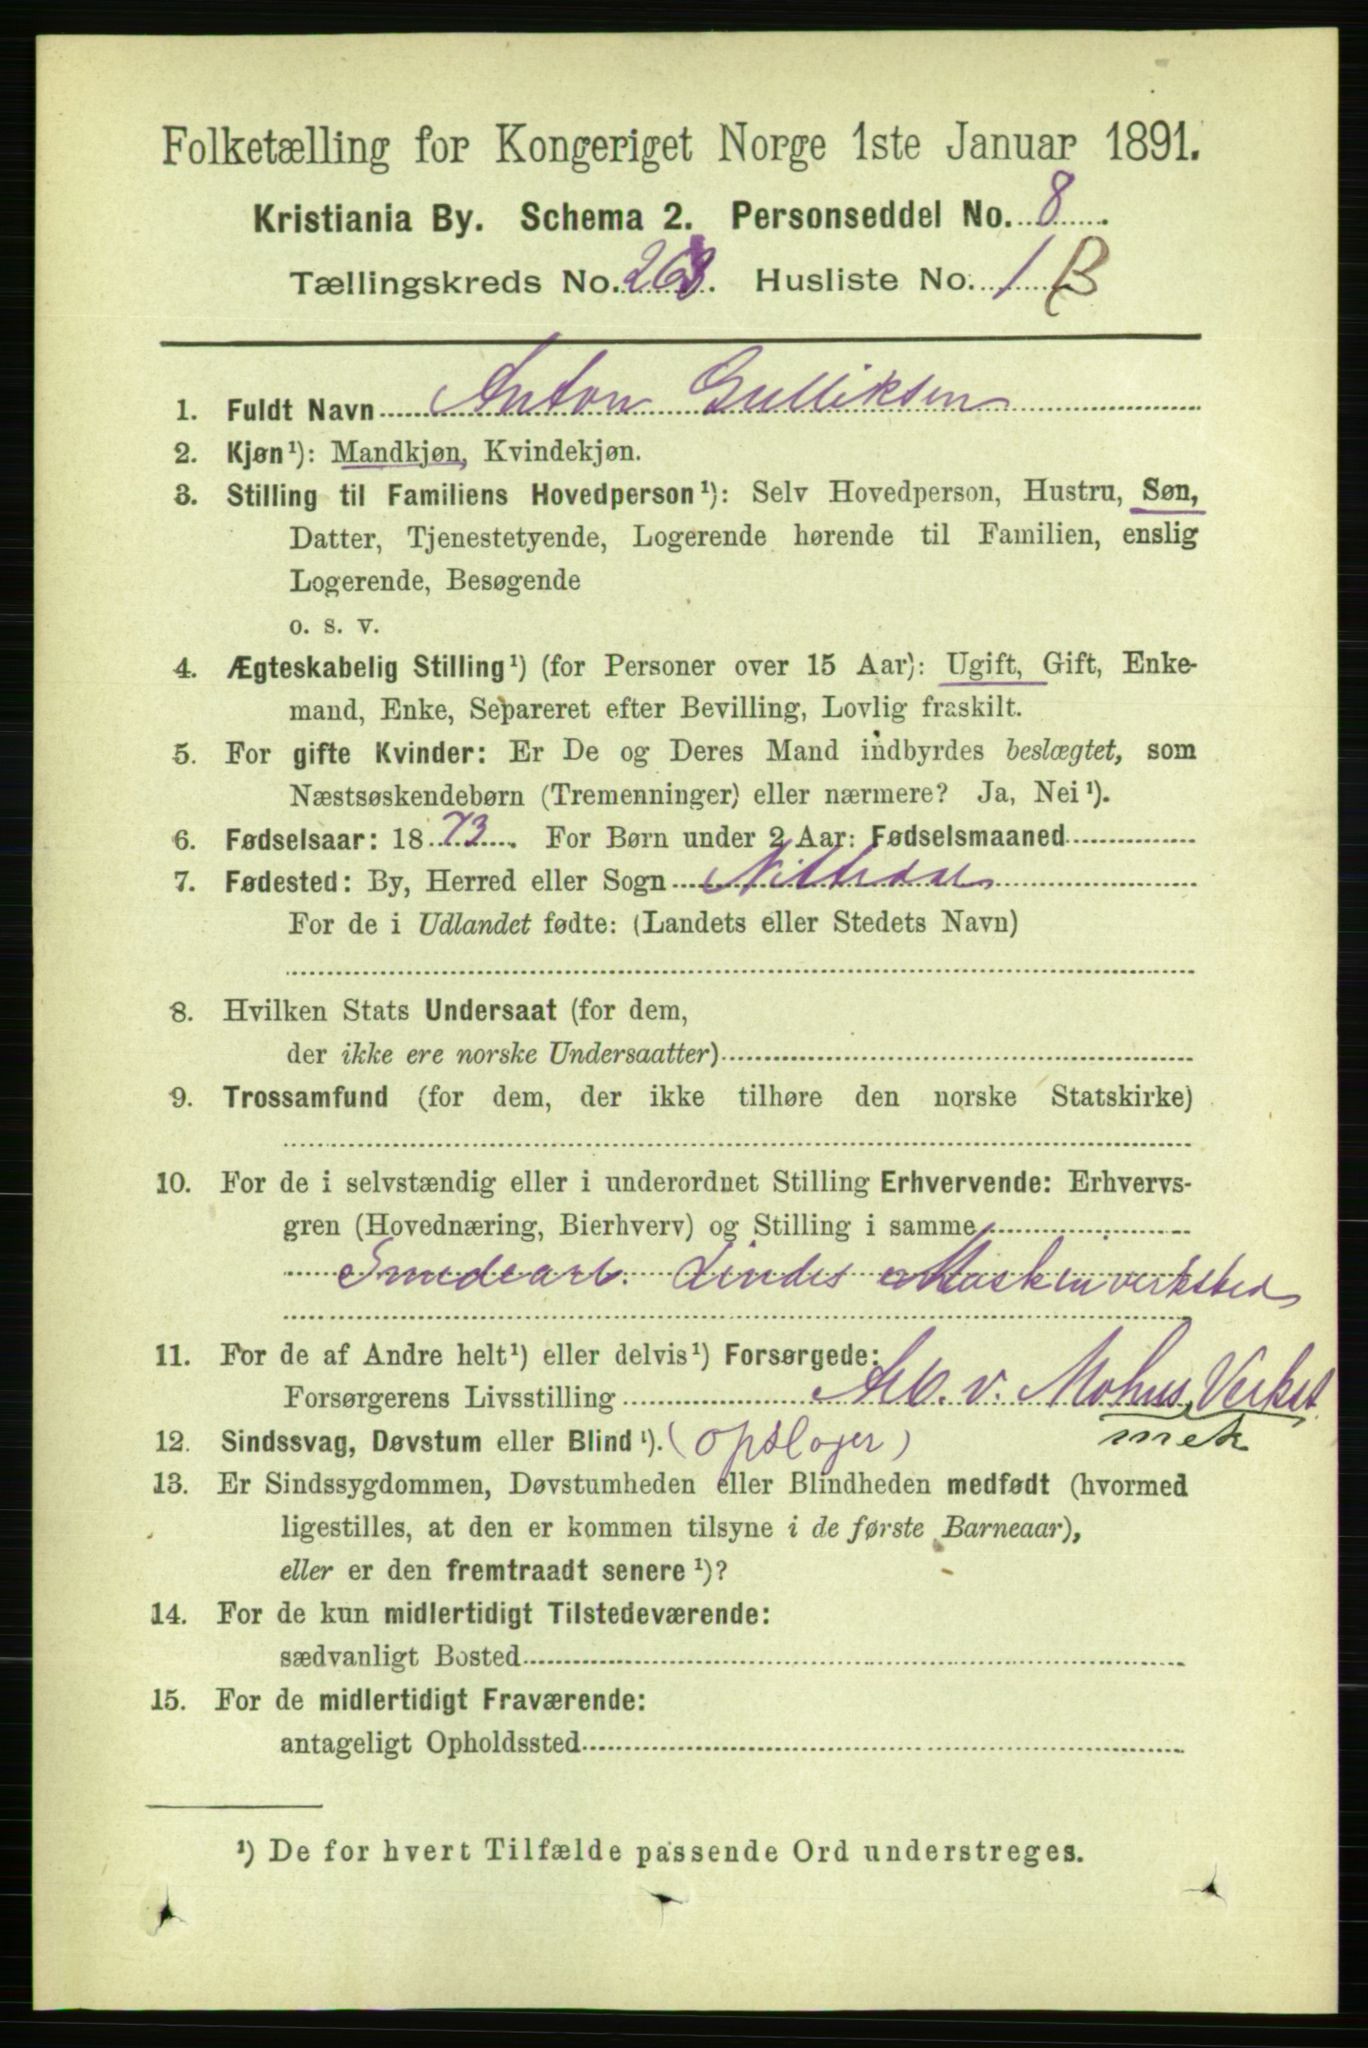 Folketælling for Kongeriget Norge 1ste Januar 1891.
Kristiania By. Schema 2. Personseddel No. 8
Tællingskreds No. 263. Husliste No. 1 B
1. Fuldt Navn Anton Gulliksen
2. Kjøn¹): Mandkjøn, Kvindekjøn.
3. Stilling til Familiens Hovedperson¹): Selv Hovedperson, Hustru, Søn,
Datter, Tjenestetyende, Logerende hørende til Familien, enslig
Logerende, Besøgende
o. s. v.
4. Ægteskabelig Stilling¹) (for Personer over 15 Aar): Ugift, Gift, Enke-
mand, Enke, Separeret efter Bevilling, Lovlig fraskilt.
5. For gifte Kvinder: Er De og Deres Mand indbyrdes beslægtet, som
Næstsøskendebørn (Tremenninger) eller nærmere? Ja, Nei¹).
6. Fødselsaar: 1873. For Børn under 2 Aar: Fødselsmaaned
7. Fødested: By, Herred eller Sogn Nittedal
For de i Udlandet fødte: (Landets eller Stedets Navn)
8. Hvilken Stats Undersaat (for dem,
der ikke ere norske Undersaatter)
9. Trossamfund (for dem, der ikke tilhøre den norske Statskirke)
10. For de i selvstændig eller i underordnet Stilling Erhvervende: Erhvervs-
gren (Hovednæring, Bierhverv) og Stilling i samme
Smedearb. Lindes Maskinverksted
11. For de af Andre helt¹) eller delvis¹) Forsørgede:
Forsørgerens Livsstilling Arb. v. Mohns Verkst
mek
12. Sindssvag, Døvstum eller Blind¹). (opsloger)
13. Er Sindssygdommen, Døvstumheden eller Blindheden medfødt (hvormed
ligestilles, at den er kommen tilsyne i de første Barneaar),
eller er den fremtraadt senere¹)?
14. For de kun midlertidigt Tilstedeværende:
sædvanligt Bosted
15. For de midlertidigt Fraværende:
antageligt Opholdssted
¹) De for hvert Tilfælde passende Ord understreges.